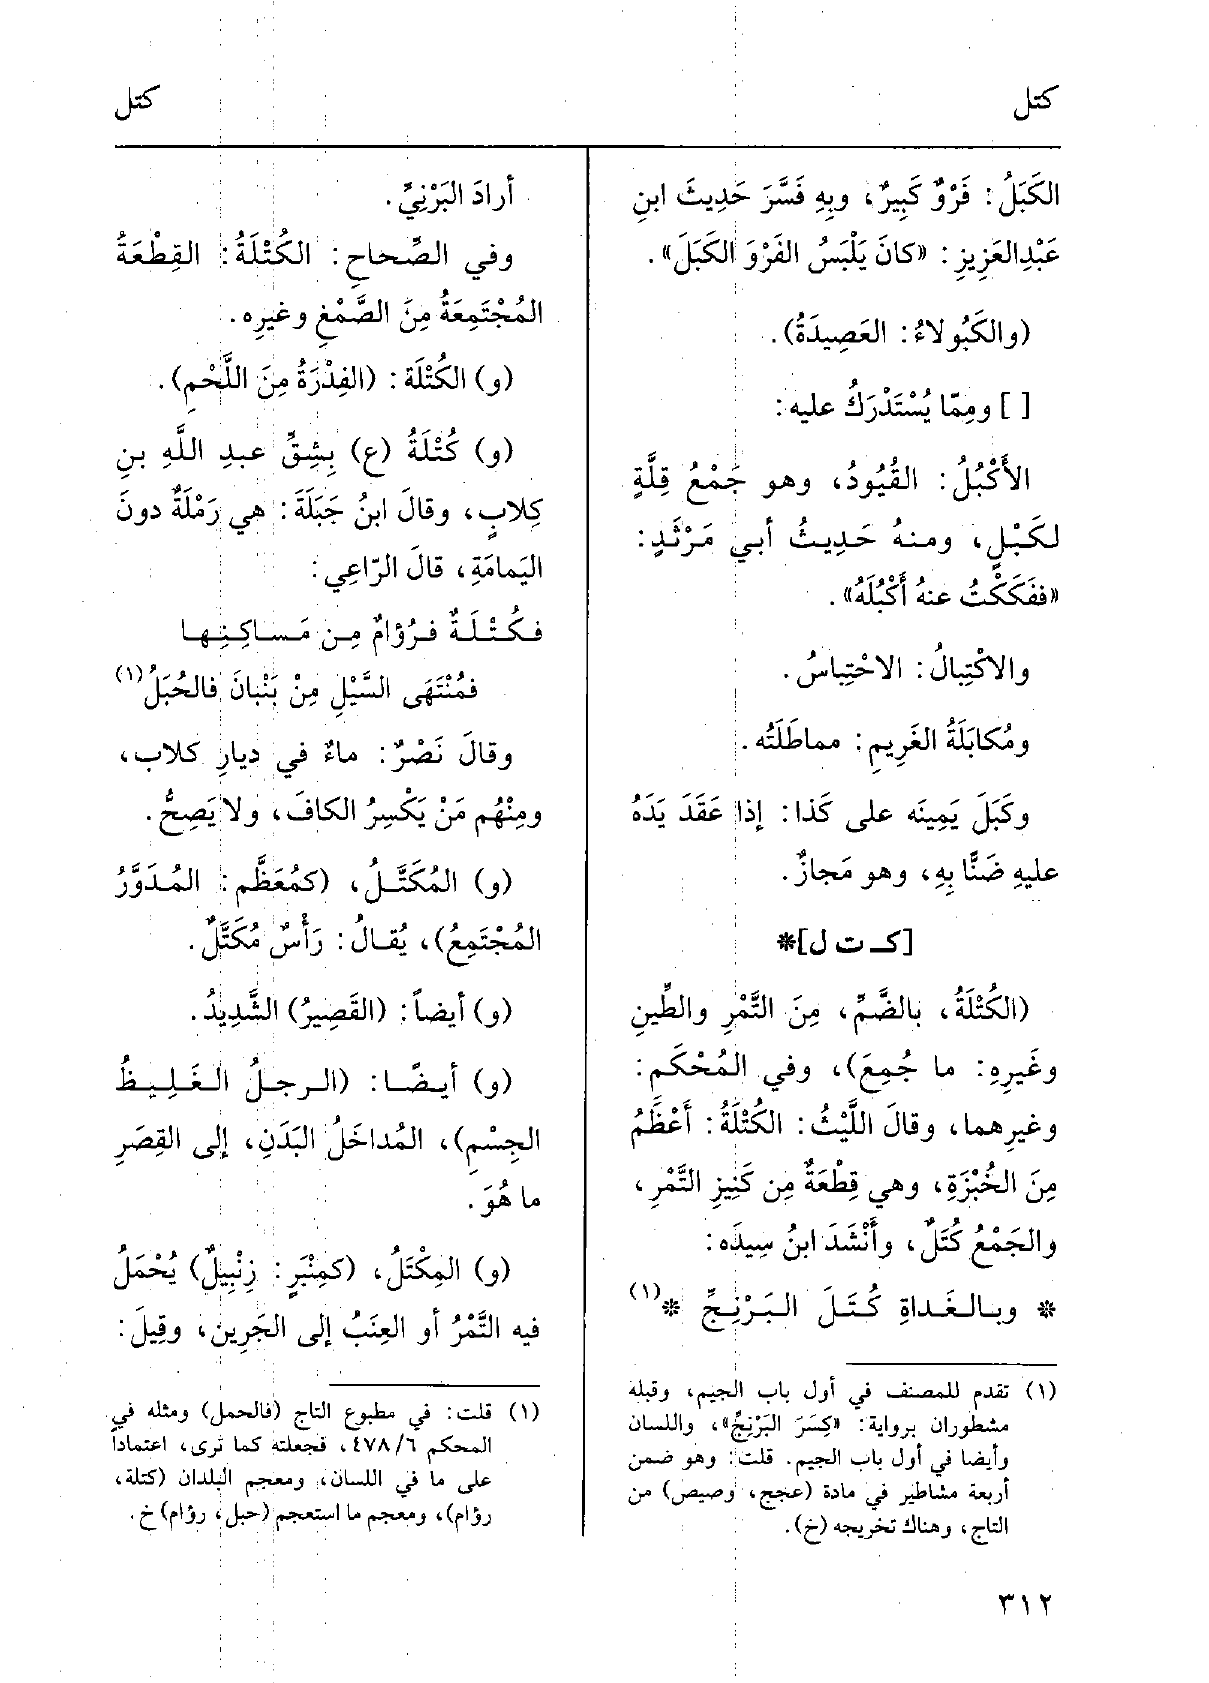 كتل
كتل
الكَبَلُ: فَرْوٌ كَبِيرٌ، وبِهِ فَسَّرَ حَدِيثَ ابنِ
عَبْدِالعَزِيزِ: «كانَ يَلْبَسُ الفَرْوَ الكَبَلَ».
(والكَبُولاءُ: العَصِيدَةُ).
[ ] ومِمّا يُسْتَدْرَكُ عليه:
الأَكْبُلُ: القُيُودُ، وهو جَمْعُ قِلَّةٍ
لكَبْلٍ، ومنهُ حَدِيثُ أبي مَرْثَدٍ:
«ففَكَكْتُ عنهُ أَكْبُلَهُ».
والاكْتِبالُ: الاحْتِباسُ.
ومُكابَلَةُ الغَرِيمِ: مماطَلَتُه.
وكَبَلَ يَمِينَه على كَذا: إذا عَقَدَ يَدَهُ
عليهِ ضَنًّا بِهِ، وهو مَجازٌ.
[كـ ت ل]*
(الكُتْلَةُ، بالضَّمِّ، مِنَ التَّمْرِ والطِّينِ
وغَيرِهِ: ما جُمِعَ)، وفي المُحْكَمِ:
وغيرِهما، وقالَ اللَّيْثُ: الكُتْلَةُ: أَعْظَمُ
مِنَ الخُبْزَةِ، وهي قِطْعَةٌ مِن كَنِيزِ التَّمْرِ،
والجَمْعُ كُتَلٌ، وأَنْشَدَ ابنُ سِيدَه:
* وبـالـغَـداةِ كُـتَـلَ الـبَـرْنِـجِّ *(١)
(١) تقدم للمصنف في أول باب الجيم، وقبله
مشطوران برواية: «كِسَرَ البَرْنِجِّ»، واللسان
وأيضا في أول باب الجيم. قلت: وهو ضمن
أربعة مشاطير في مادة (عجج، وصيص) من
التاج، وهناك تخريجه (خ).
أرادَ البَرْنِيَّ.
وفي الصِّحاحِ: الكُتْلَةُ: القِطْعَةُ
المُجْتَمِعَةُ مِنَ الصَّمْغِ وغيرِه.
(و) الكُتْلَة: (الفِدْرَةُ مِنَ اللَّحْمِ).
(و) كُتْلَةُ (ع) بِشِقِّ عبدِ اللَّهِ بنِ
كِلابٍ، وقالَ ابنُ جَبَلَةَ: هي رَمْلَةٌ دونَ
اليَمامَةِ، قالَ الرّاعِي:
فـكُـتْـلَـةٌ فـرُؤامٌ مِـن مَـسـاكِـنِـهـا
فمُنْتَهَى السَّيْلِ مِنْ بَنْبانَ فالحُبَلُ(١)
وقالَ نَصْرٌ: ماءٌ في ديارِ كلاب،
ومِنْهُم مَنْ يَكْسِرُ الكافَ، ولا يَصِحُّ.
(و) المُكَتَّـلُ، (كمُعَظَّمٍ: المُدَوَّرُ
المُجْتَمِعُ)، يُقالُ: رَأْسٌ مُكَتَّلٌ.
(و) أيضاً: (القَصِيرُ) الشَّدِيدُ.
(و) أيـضًـا: (الـرجـلُ الـغَـلِـيـظُ
الجِسْمِ)، المُداخَلُ البَدَنِ، إلى القِصَرِ
ما هُوَ.
(و) المِكْتَلُ، (كمِنْبَرٍ: زِنْبِيلٌ) يُحْمَلُ
فيه التَّمْرُ أو العِنَبُ إلى الجَرِينِ، وقِيلَ:
(١) قلت: في مطبوع التاج (فالحمل) ومثله في
المحكم ٤٧٨/٦، فجعلته كما ترى، اعتماداً
على ما في اللسان، ومعجم البلدان (كتلة،
رؤام)، ومعجم ما استعجم (حبل، رؤام) خ.
٣١٢